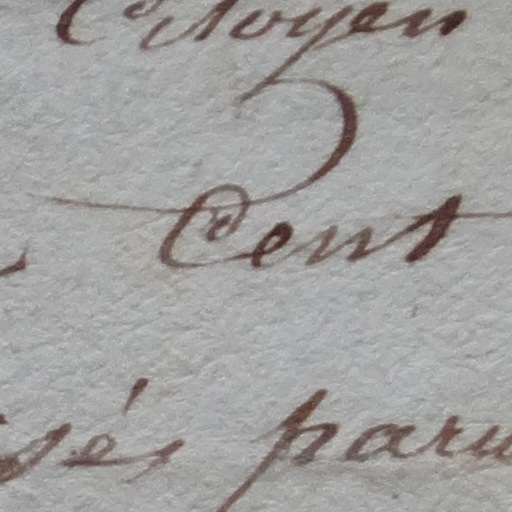 Citoyen
Cent
gés paru